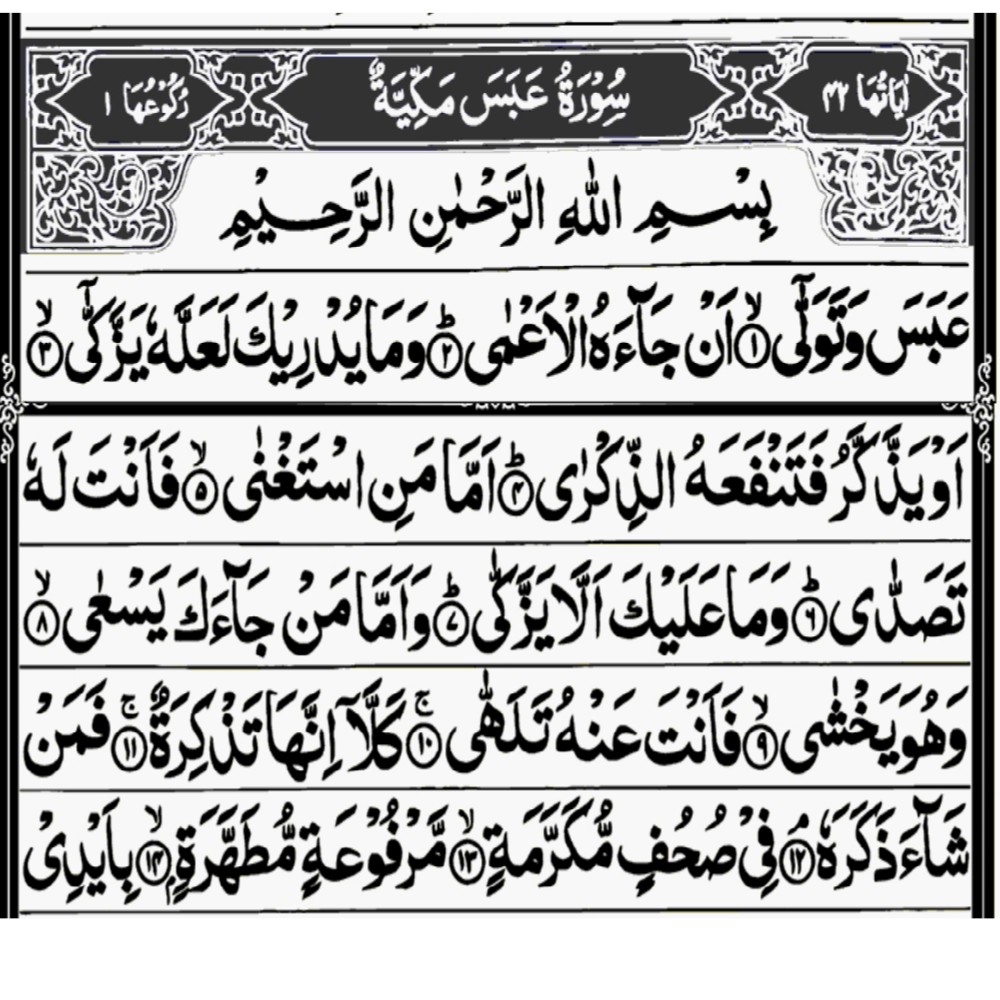 اٰیَاتُهَا ۴۲ سُوْرَةُ عَبَسَ مَكِّیَّةٌ رُكُوْعُهَا ۱
بِسْمِ اللّٰهِ الرَّحْمٰنِ الرَّحِیْمِ
عَبَسَ وَ تَوَلّٰۤی ۙ﴿۱﴾ اَنْ جَآءَهُ الْاَعْمٰی ؕ﴿۲﴾ وَ مَا یُدْرِیْكَ لَعَلَّهٗ یَزَّكّٰۤی ۙ﴿۳﴾
اَوْ یَذَّكَّرُ فَتَنْفَعَهُ الذِّكْرٰی ؕ﴿۴﴾ اَمَّا مَنِ اسْتَغْنٰی ۙ﴿۵﴾ فَاَنْتَ لَهٗ
تَصَدّٰی ؕ﴿۶﴾ وَ مَا عَلَیْكَ اَلَّا یَزَّكّٰی ؕ﴿۷﴾ وَ اَمَّا مَنْ جَآءَكَ یَسْعٰی ۙ﴿۸﴾
وَ هُوَ یَخْشٰی ۙ﴿۹﴾ فَاَنْتَ عَنْهُ تَلَهّٰی ۚ﴿۱۰﴾ كَلَّاۤ اِنَّهَا تَذْكِرَةٌ ۚ﴿۱۱﴾ فَمَنْ
شَآءَ ذَكَرَهٗ ۘ﴿۱۲﴾ فِیْ صُحُفٍ مُّكَرَّمَةٍ ۙ﴿۱۳﴾ مَّرْفُوْعَةٍ مُّطَهَّرَةٍۭ ۙ﴿۱۴﴾ بِاَیْدِیْ